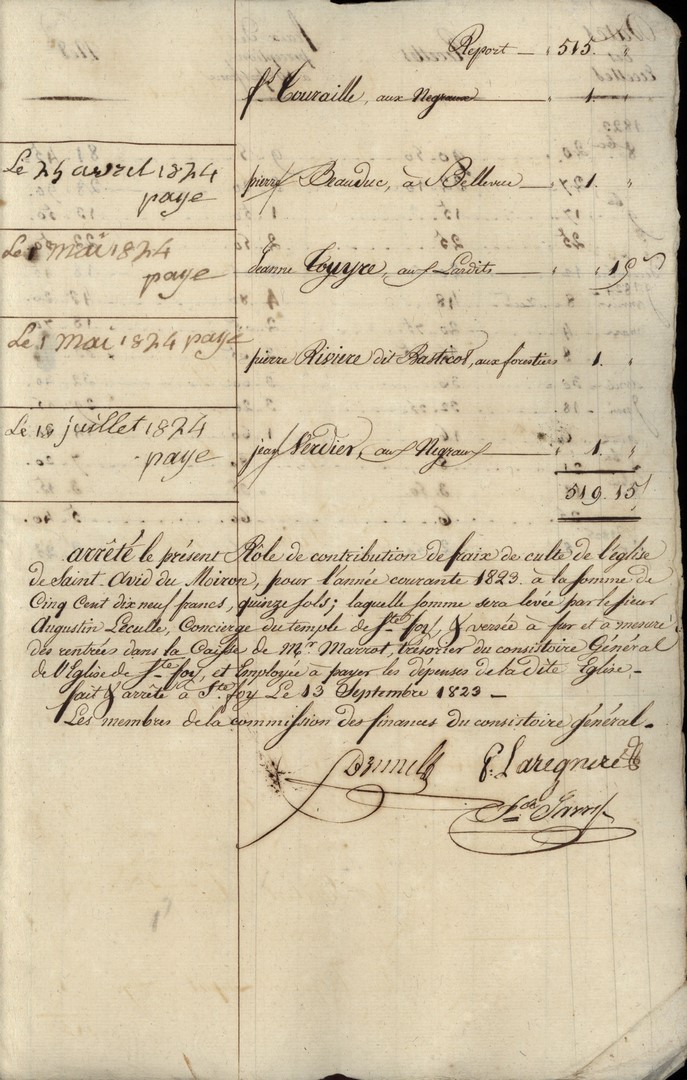 Report — " 515. "
fs. Touraille, aux Negraux — " 1. "
Le 25 avril 1824
paye
pierre Beauduc, à Bellevue — " 1. "
Le 1 mai 1824
paye
Jeanne Couyre, aux Lardits — " " 15s
Le 1 mai 1824 paye
pierre Riviere dit Basticot, aux forestiers 1. "
Le 18 juillet 1824
paye
jean Verdier, aux Negraux — " 1. "
519. 15s
arrêté le présent Rôle de contribution de fraix de culte de l'église
de Saint-Avid du Moiron, pour l'année courante 1823 à la somme de
Cinq Cent dix neuf francs, quinze sols; laquelle somme sera levée par le sieur
Augustin Léculle, Concierge du temple de Ste foy, & versée à fur et à mesure
des rentrées dans la Caisse de Mr. Marrot, trésorier du consistoire Général
de l'Eglise de Ste foy, et Employée à payer les dépenses de la dite Eglise.
fait & arrêté à Ste foy Le 13 Septembre 1823 —
Les membres de la commission des finances du consistoire général.